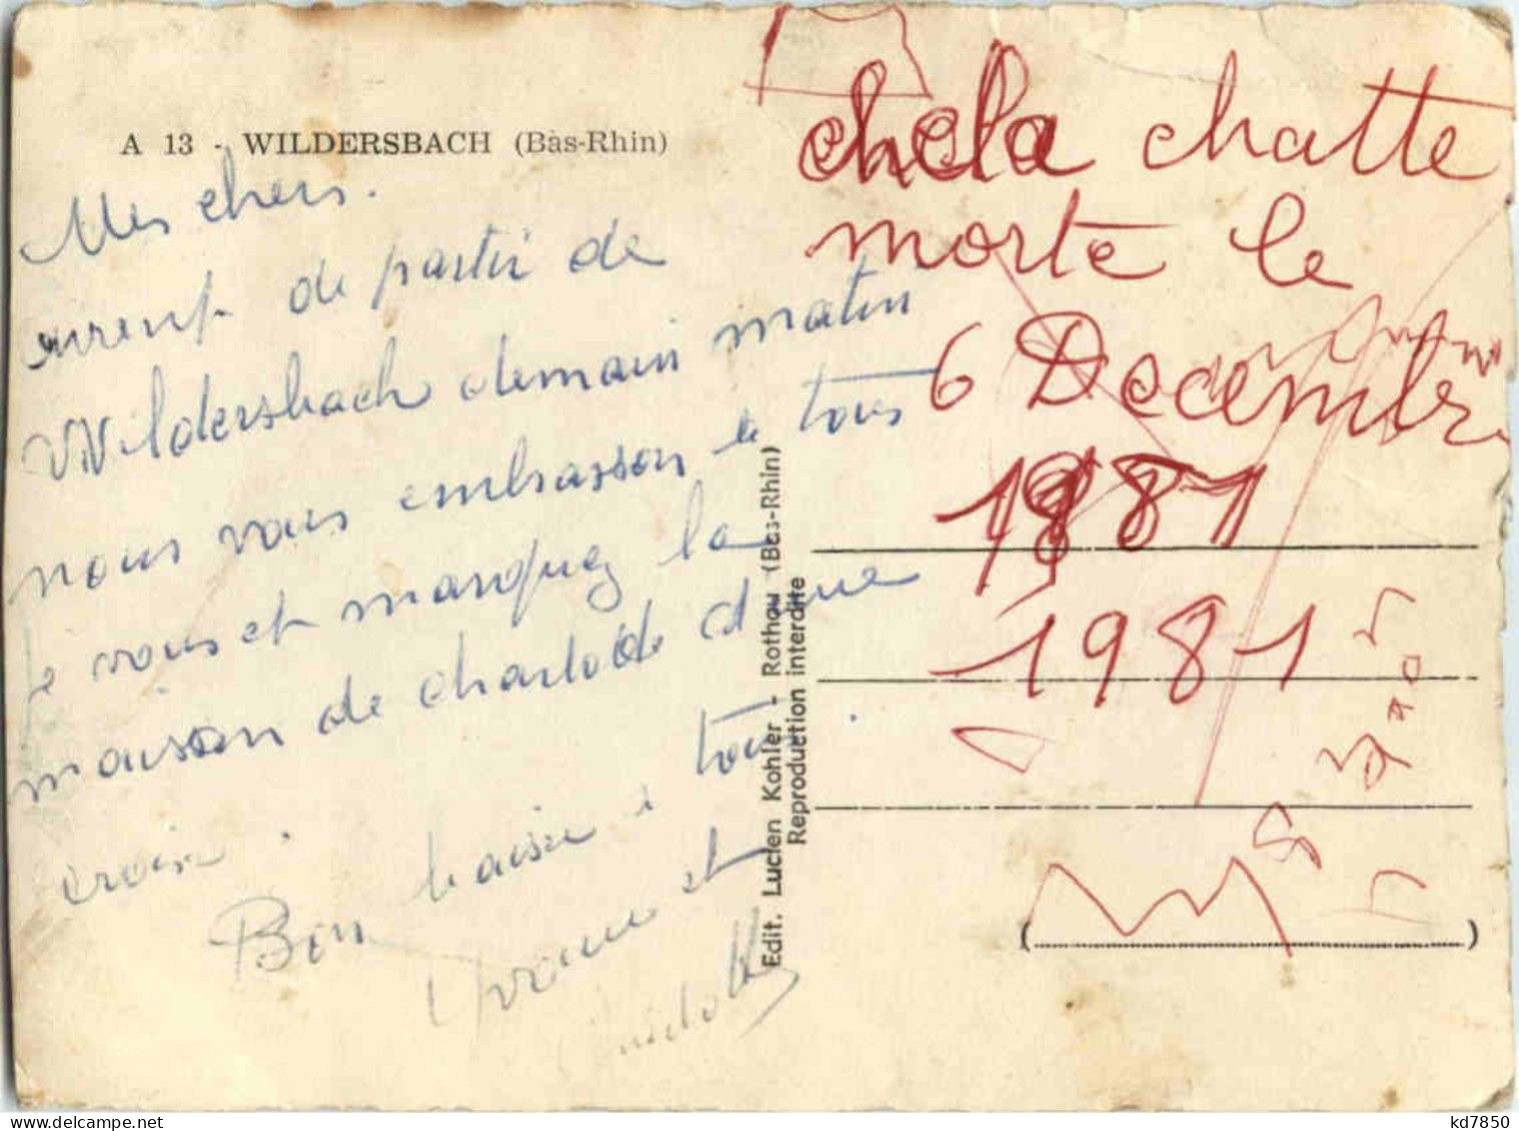 A 13 - WILDERSBACH (Bas-Rhin)
Mes chers.
de partir de
Wildersbach demain matin
nous vous embrasson tous
je vous et marquez la
maison de d une
croix.
Bon baiser à tous
Yvonne et
Edit. Lucien Kohler - Rothau (Bas-Rhin)
Reproduction interdite
chela chatte
morte le
6 Decembre
1981
1981
(
)
kd7850